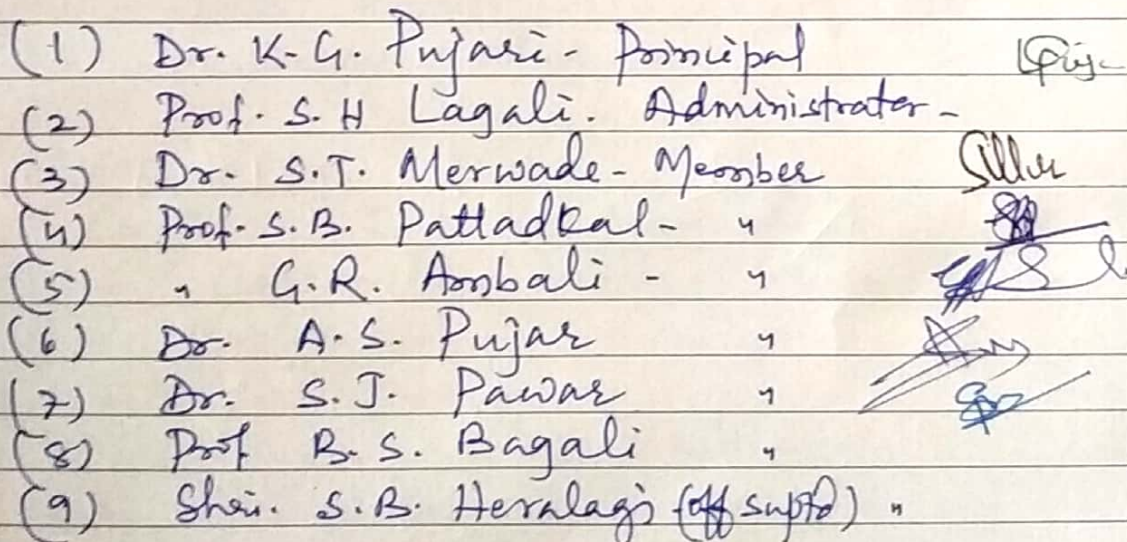 (1) Dr. K.G. Pujari - Principal
(2) Prof. S.H Lagali. Administrater -
(3) Dr. S.T. Merwade - Member
(4) Prof. S.B. Pattadkal - "
(5) " G.R. Ambali - "
(6) Dr. A.S. Pujar "
(7) Dr. S.J. Pawar "
(8) Prof B.S. Bagali "
(9) Shri. S.B. Heralagi (off suptd) "